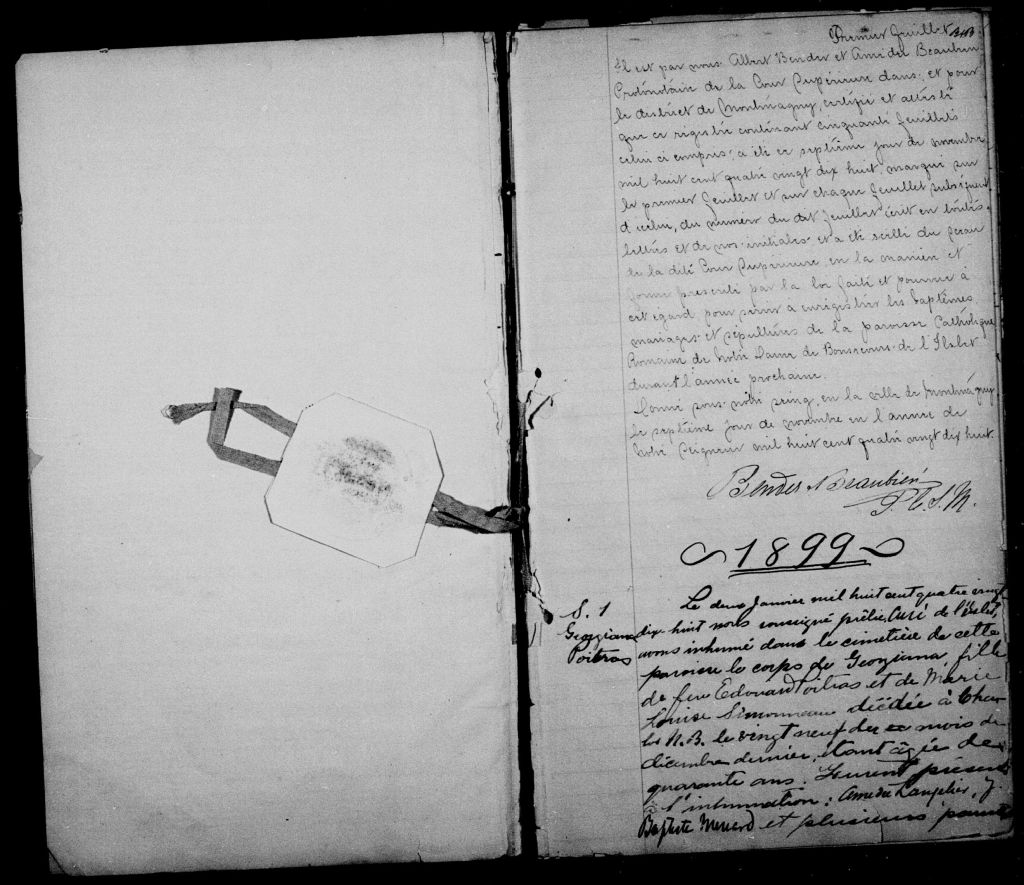 Premier feuillet B&B
Il est par nous Albert Bender et Amédée Beaubien
Protonotaire de la Cour Supérieure dans, et pour
le district de Montmagny, certifié et attesté
que ce régistre contenant cinquante feuillets
celui ci compris, a été ce septième jour de novembre
mil huit cent quatre vingt dix huit, marqué sur
le premier feuillet et sur chaque feuillet subséquent
d'icelui, du numéro du dit feuillet écrit en toutes
lettres et de nos initiales et a été scellé du sceau
de la dite Cour Supérieure, en la manière et
forme prescrite par la loi faite et pourvue à
cet égard, pour servir à enrégistrer les baptêmes,
mariages et sépultures de la paroisse Catholique
Romaine de Notre Dame de Bonsecours de l'Islet
durant l'année prochaine.
Donné sous notre seing, en la ville de Montmagny
le septième jour de novembre en l'année de
Notre Seigneur mil huit cent quatre vingt dix huit.
Bender & Beaubien
P. C. S. M.
1899
S. 1
Georgiana
Poitras
Le deux Janvier mil huit cent quatre vingt
dix huit nous soussigné prêtre, Curé de l'Islet,
avons inhumé dans le cimetière de cette
paroisse le corps de Georgiana, fille
de feu Edouard Poitras et de Marie
Louise Simonneau décédée à
N. B. le vingt neuf du mois de
décembre dernier, étant âgée de
quarante ans. Furent présents
à l'inhumation: Amédée Langelier, J.
Baptiste et plusieurs parents